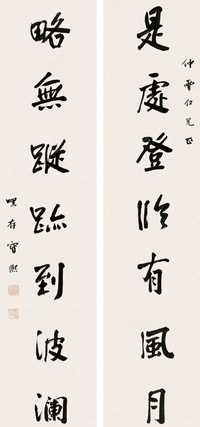 仲雲仁兄正
是處登臨有風月
略無蹤跡到波瀾
嘿存寶熙